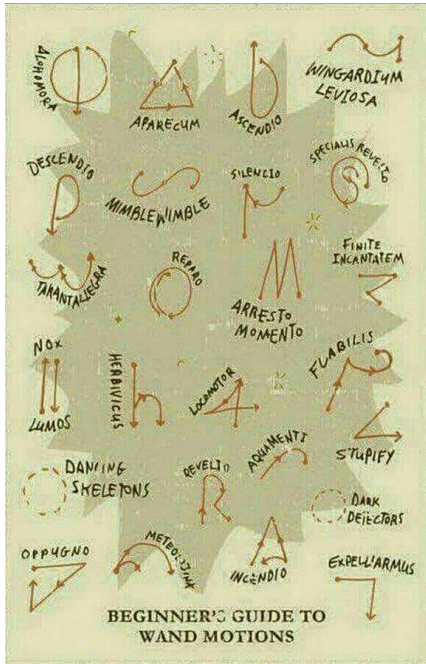 ALOHOMORA
APARECUM
ASCENDIO
WINGARDIUM
LEVIOSA
DESCENDIO
MIMBLEWIMBLE
SILENCIO
SPECIALIS REVELIO
TARANTALLEGRA
REPARO
ARRESTO
MOMENTO
FINITE
INCANTATEM
NOX
LUMOS
HERBIVICUS
LOCOMOTOR
FLABILIS
STUPIFY
DANCING
SKELETONS
REVELIO
AQUAMENTI
DARK
DETECTORS
OPPUGNO
INCENDIO
EXPELLIARMUS
BEGINNER'S GUIDE TO
WAND MOTIONS